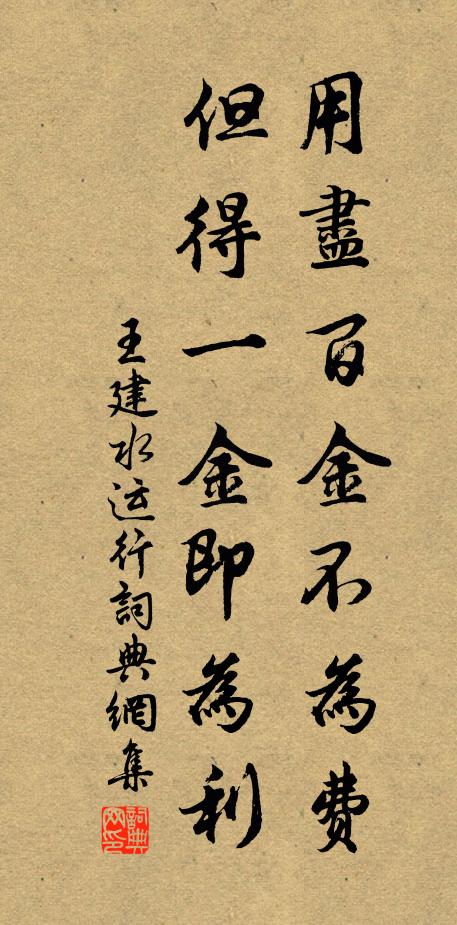 用盡百金不為費
但得一金即為利
王建水运行詞典網集
詞典网印